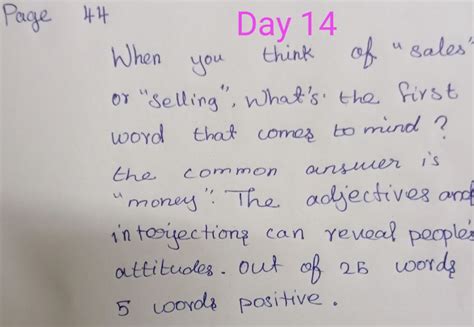 Page 44
Day 14
When you think of "sales"
or "selling", what's the first
word that comes to mind?
the common answer is
"money". The adjectives and
interjections can reveal people's
attitudes. out of 25 words
5 words positive.